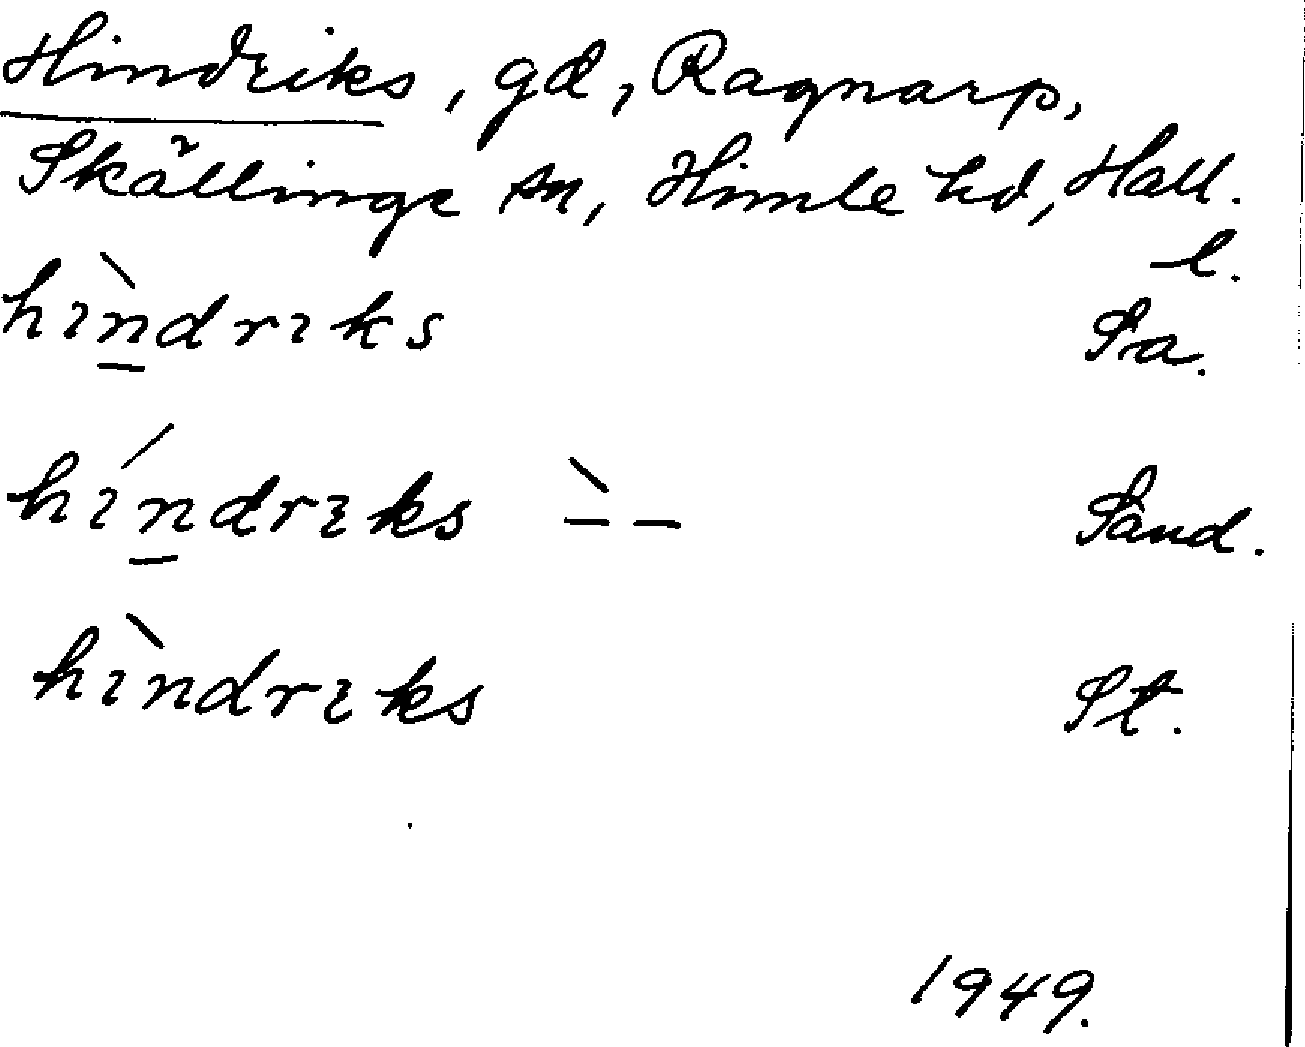 Hindriks, gd, Ragnarp,
Skällinge sn, Himle hd, Hall.
l.
hɩ̀ndrɩks Sa.
hɩ́ndrɩks ̀– – Sand.
hɩ̀ndrɩks St.
1949.